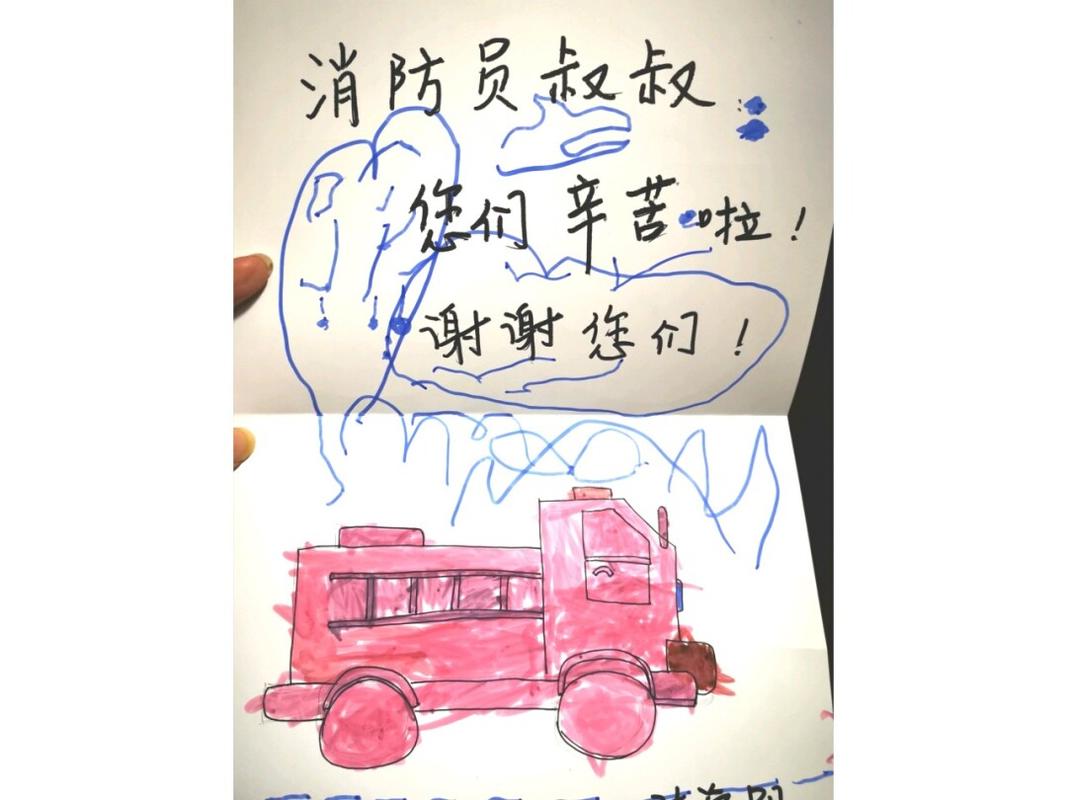 消防员叔叔：
您们辛苦啦！
谢谢您们！